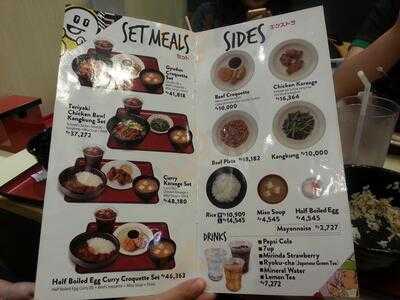 SET MEALS
セット
Gyudon
Croquette
Set
Rp 41,818
Teriyaki
Chicken Bowl
Kangkung Set
Rp 37,272
Curry
Karaage Set
Rp 48,180
Half Boiled Egg Curry Croquette Set Rp 46,363
SIDES
エクストラ
Beef Croquette
Rp 10,000
Chicken Karaage
Rp 16,364
Beef Plate Rp 18,182
Kangkung Rp 10,000
Rice Rp 10,909
Rp 14,545
Miso Soup
Rp 4,545
Half Boiled
Egg
Rp 4,545
Mayonnaise Rp 2,727
DRINKS
Pepsi Cola
7up
Mirinda Strawberry
Ryoku-cha (Japanese Green Tea)
Mineral Water
Lemon Tea
Rp 7,272